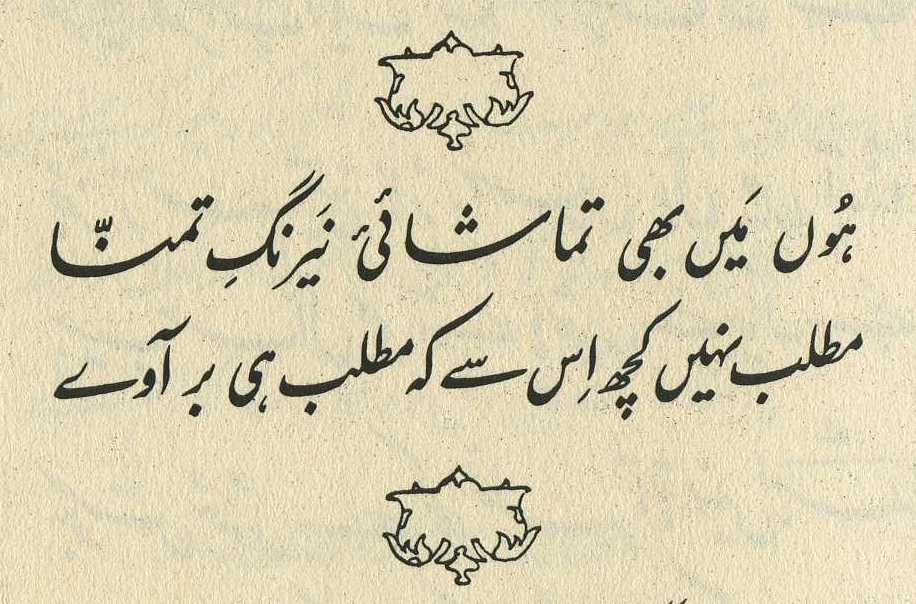 ہُوں مَیں بھی تماشائیٔ نَیرنگِ تمنّا
مطلب نہیں کچھ اِس سے کہ مطلب ہی بر آوے